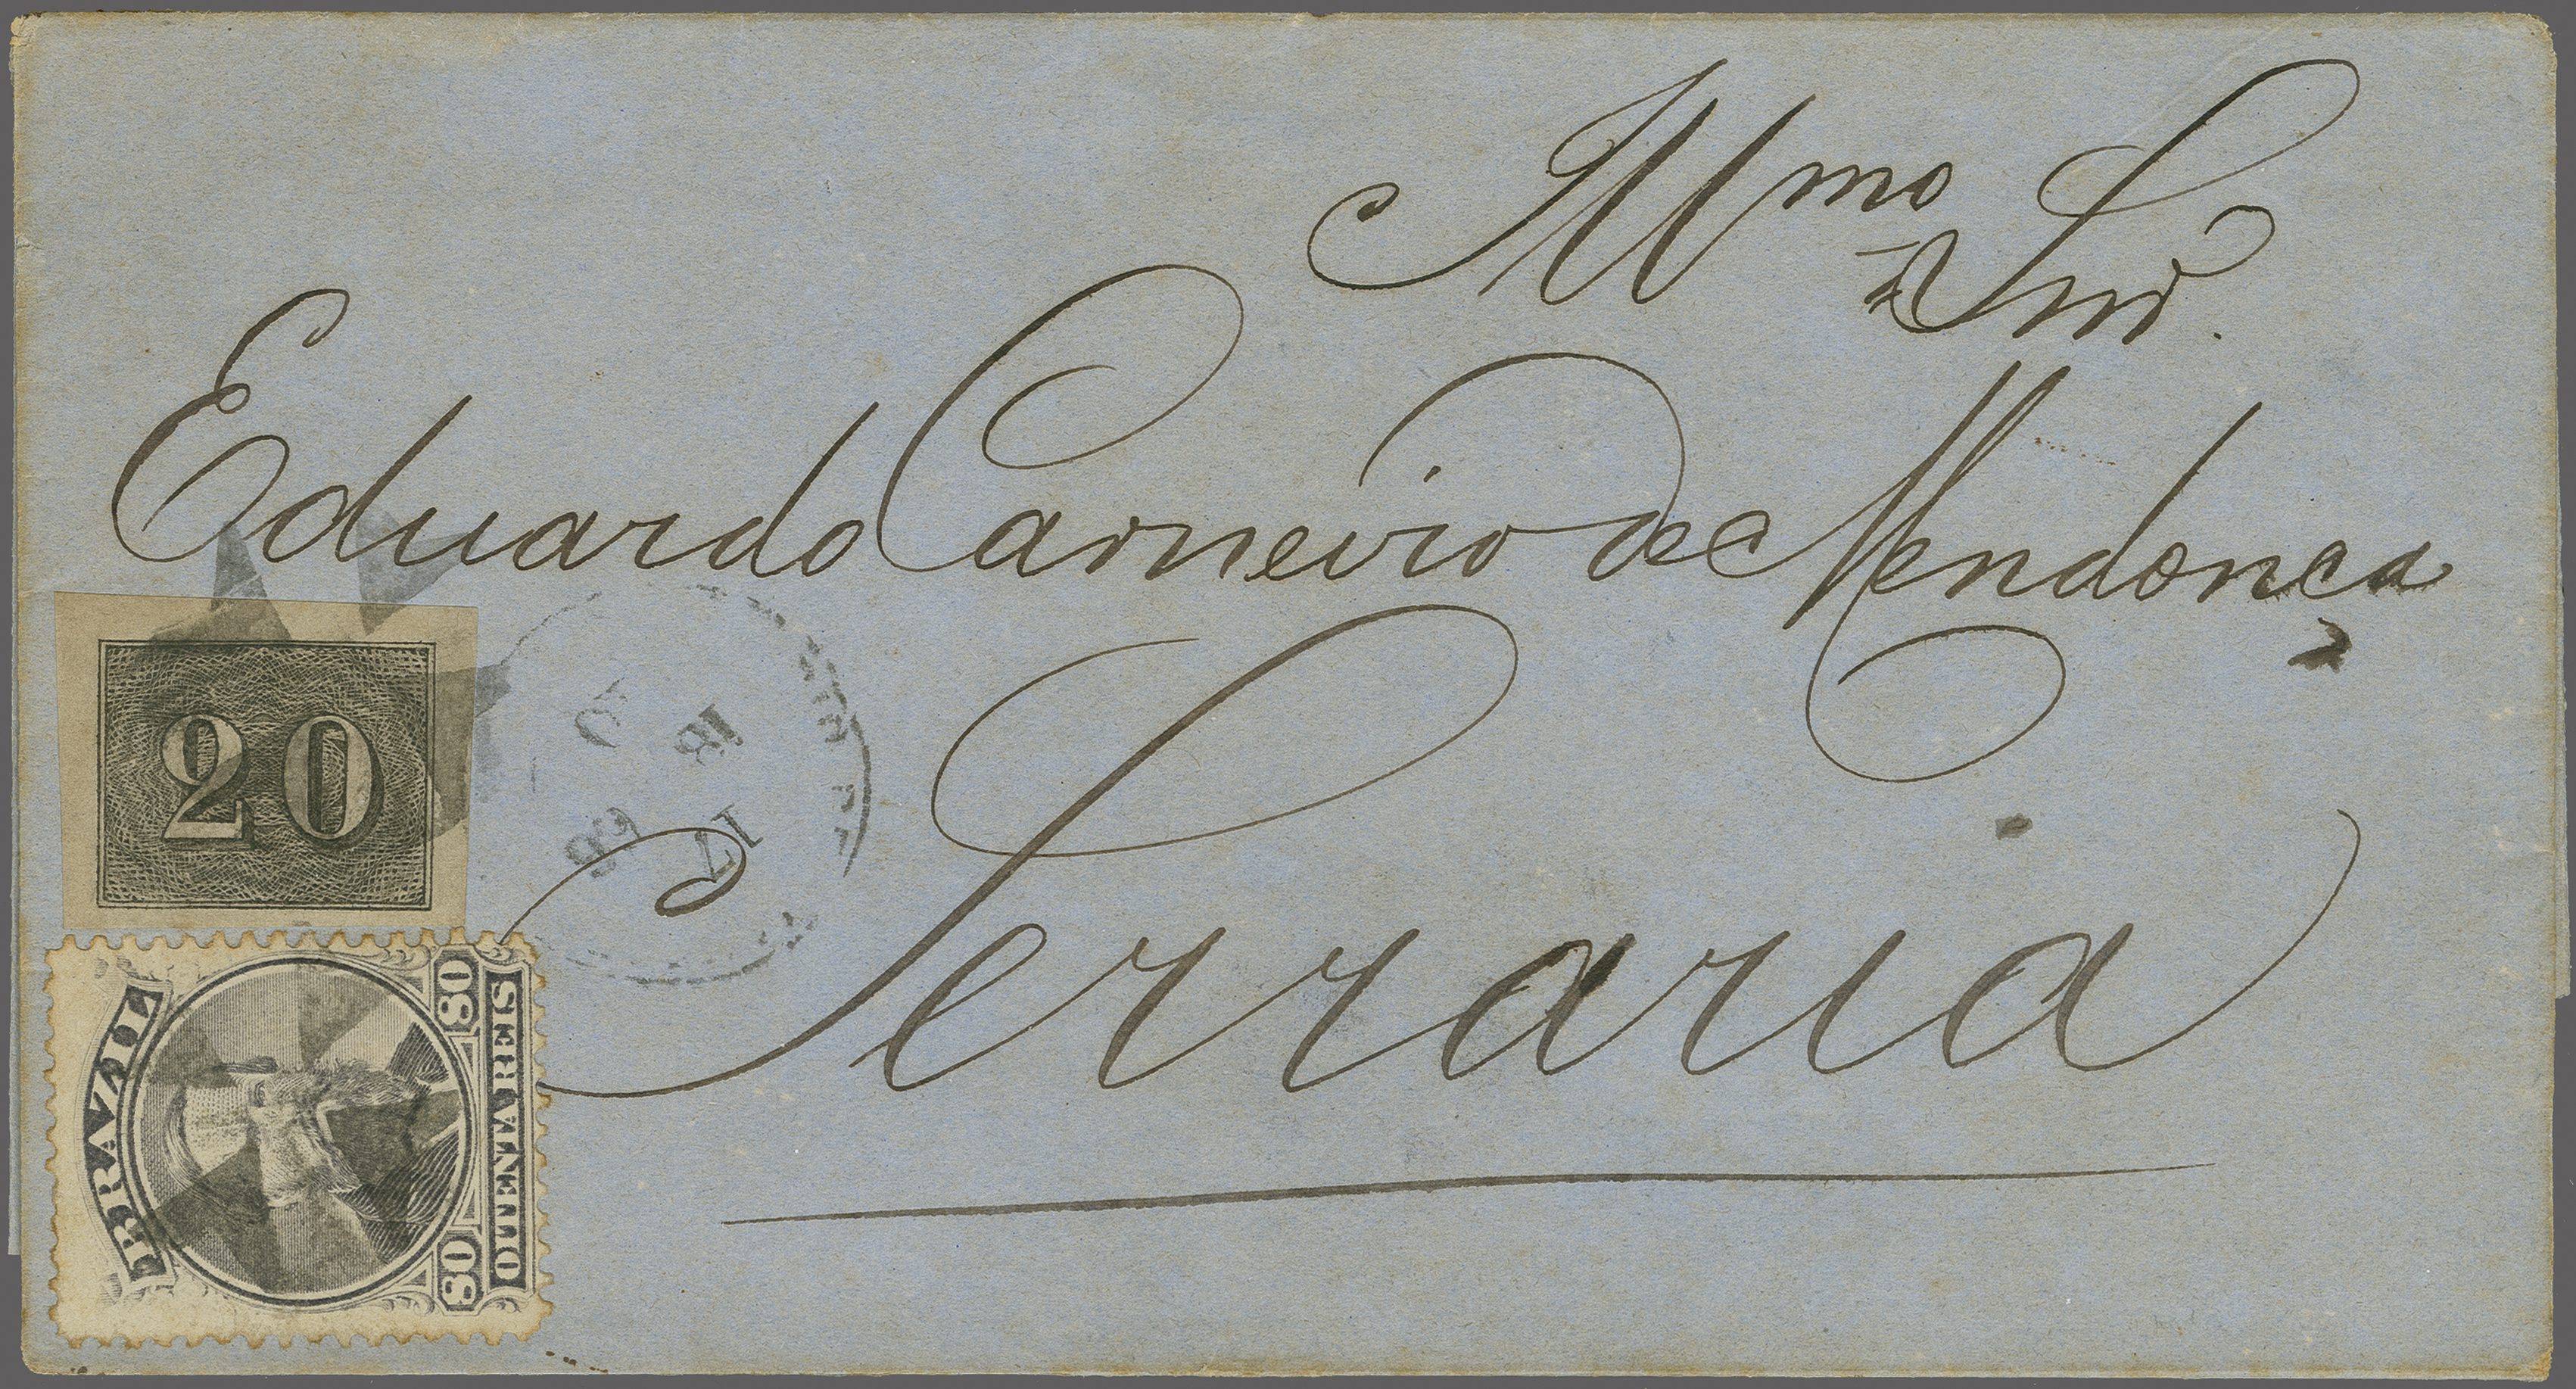 Illmo Snr.
Eduardo Carneiro de Mendonça
Serraria
20
BRAZIL
80
80
OITENTA REIS
17